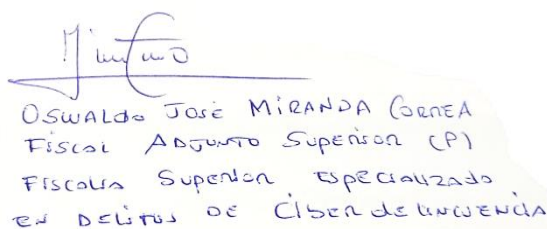 OSWALDO JOSÉ MIRANDA CORREA
FISCAL ADJUNTO SUPERIOR (P)
FISCALIA SUPERIOR ESPECIALIZADO
EN DELITOS DE CIBERDELINCUENCIA